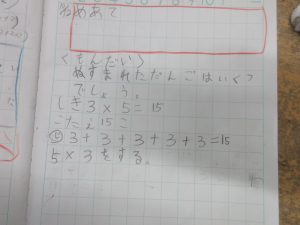 めあて
＜もんだい＞
ぬすまれただんごはいくつ
でしょう。
しき3×5=15
こたえ15こ
3+3+3+3+3=15
5×3をする。